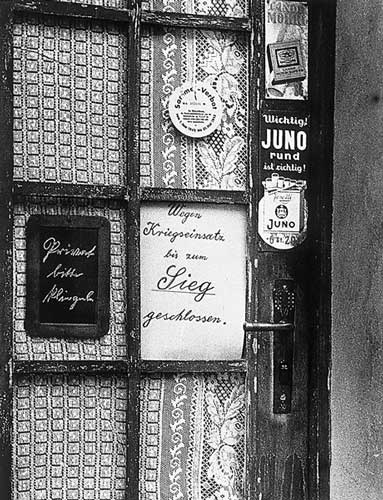 Wichtig!
JUNO
rund
ist richtig!
JUNO
Wegen
Kriegseinsatz
bis zum
Sieg
geschlossen.
Privat
bitte
klingeln